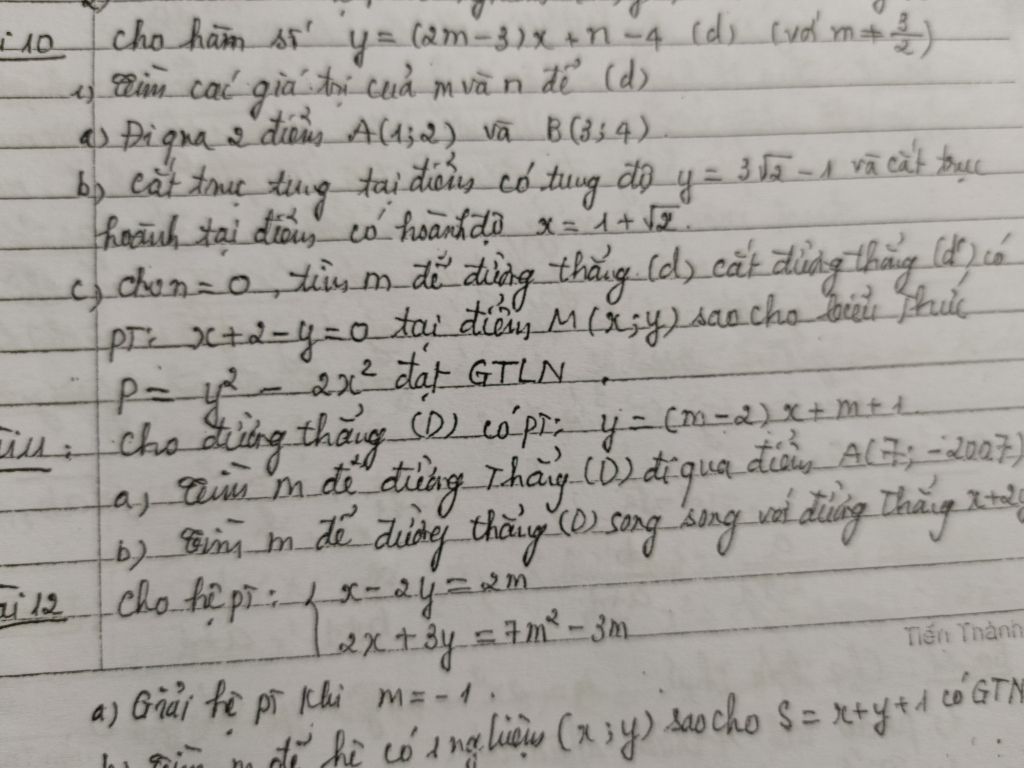 i 10 cho hàm số y = (2m-3)x + n - 4 (d) (với m ≠ 3/2)
1) Tìm các giá trị của m và n để (d)
a) Đi qua 2 điểm A(1;2) và B(3;4).
b) cắt trục tung tại điểm có tung độ y = 3√2 - 1 và cắt trục
hoành tại điểm có hoành độ x = 1 + √2.
c) cho n = 0, tìm m để đường thẳng (d) cắt đường thẳng (d') có
PT: x + 2 - y = 0 tại điểm M(x;y) sao cho biểu thức
P = y² - 2x² đạt GTLN.
cho đường thẳng (D) có PT: y = (m-2)x + m + 1
a) Tìm m để đường Thẳng (D) đi qua điểm A(7; -2007)
b) Tìm m để đường thẳng (D) song song với đường Thẳng x + 2y
ài 12 cho hệ PT: { x - 2y = 2m
2x + 3y = 7m² - 3m
Tiến Thành
a) Giải hệ PT khi m = -1.
m để hệ có 1 nghiệm (x;y) sao cho S = x + y + 1 có GTN